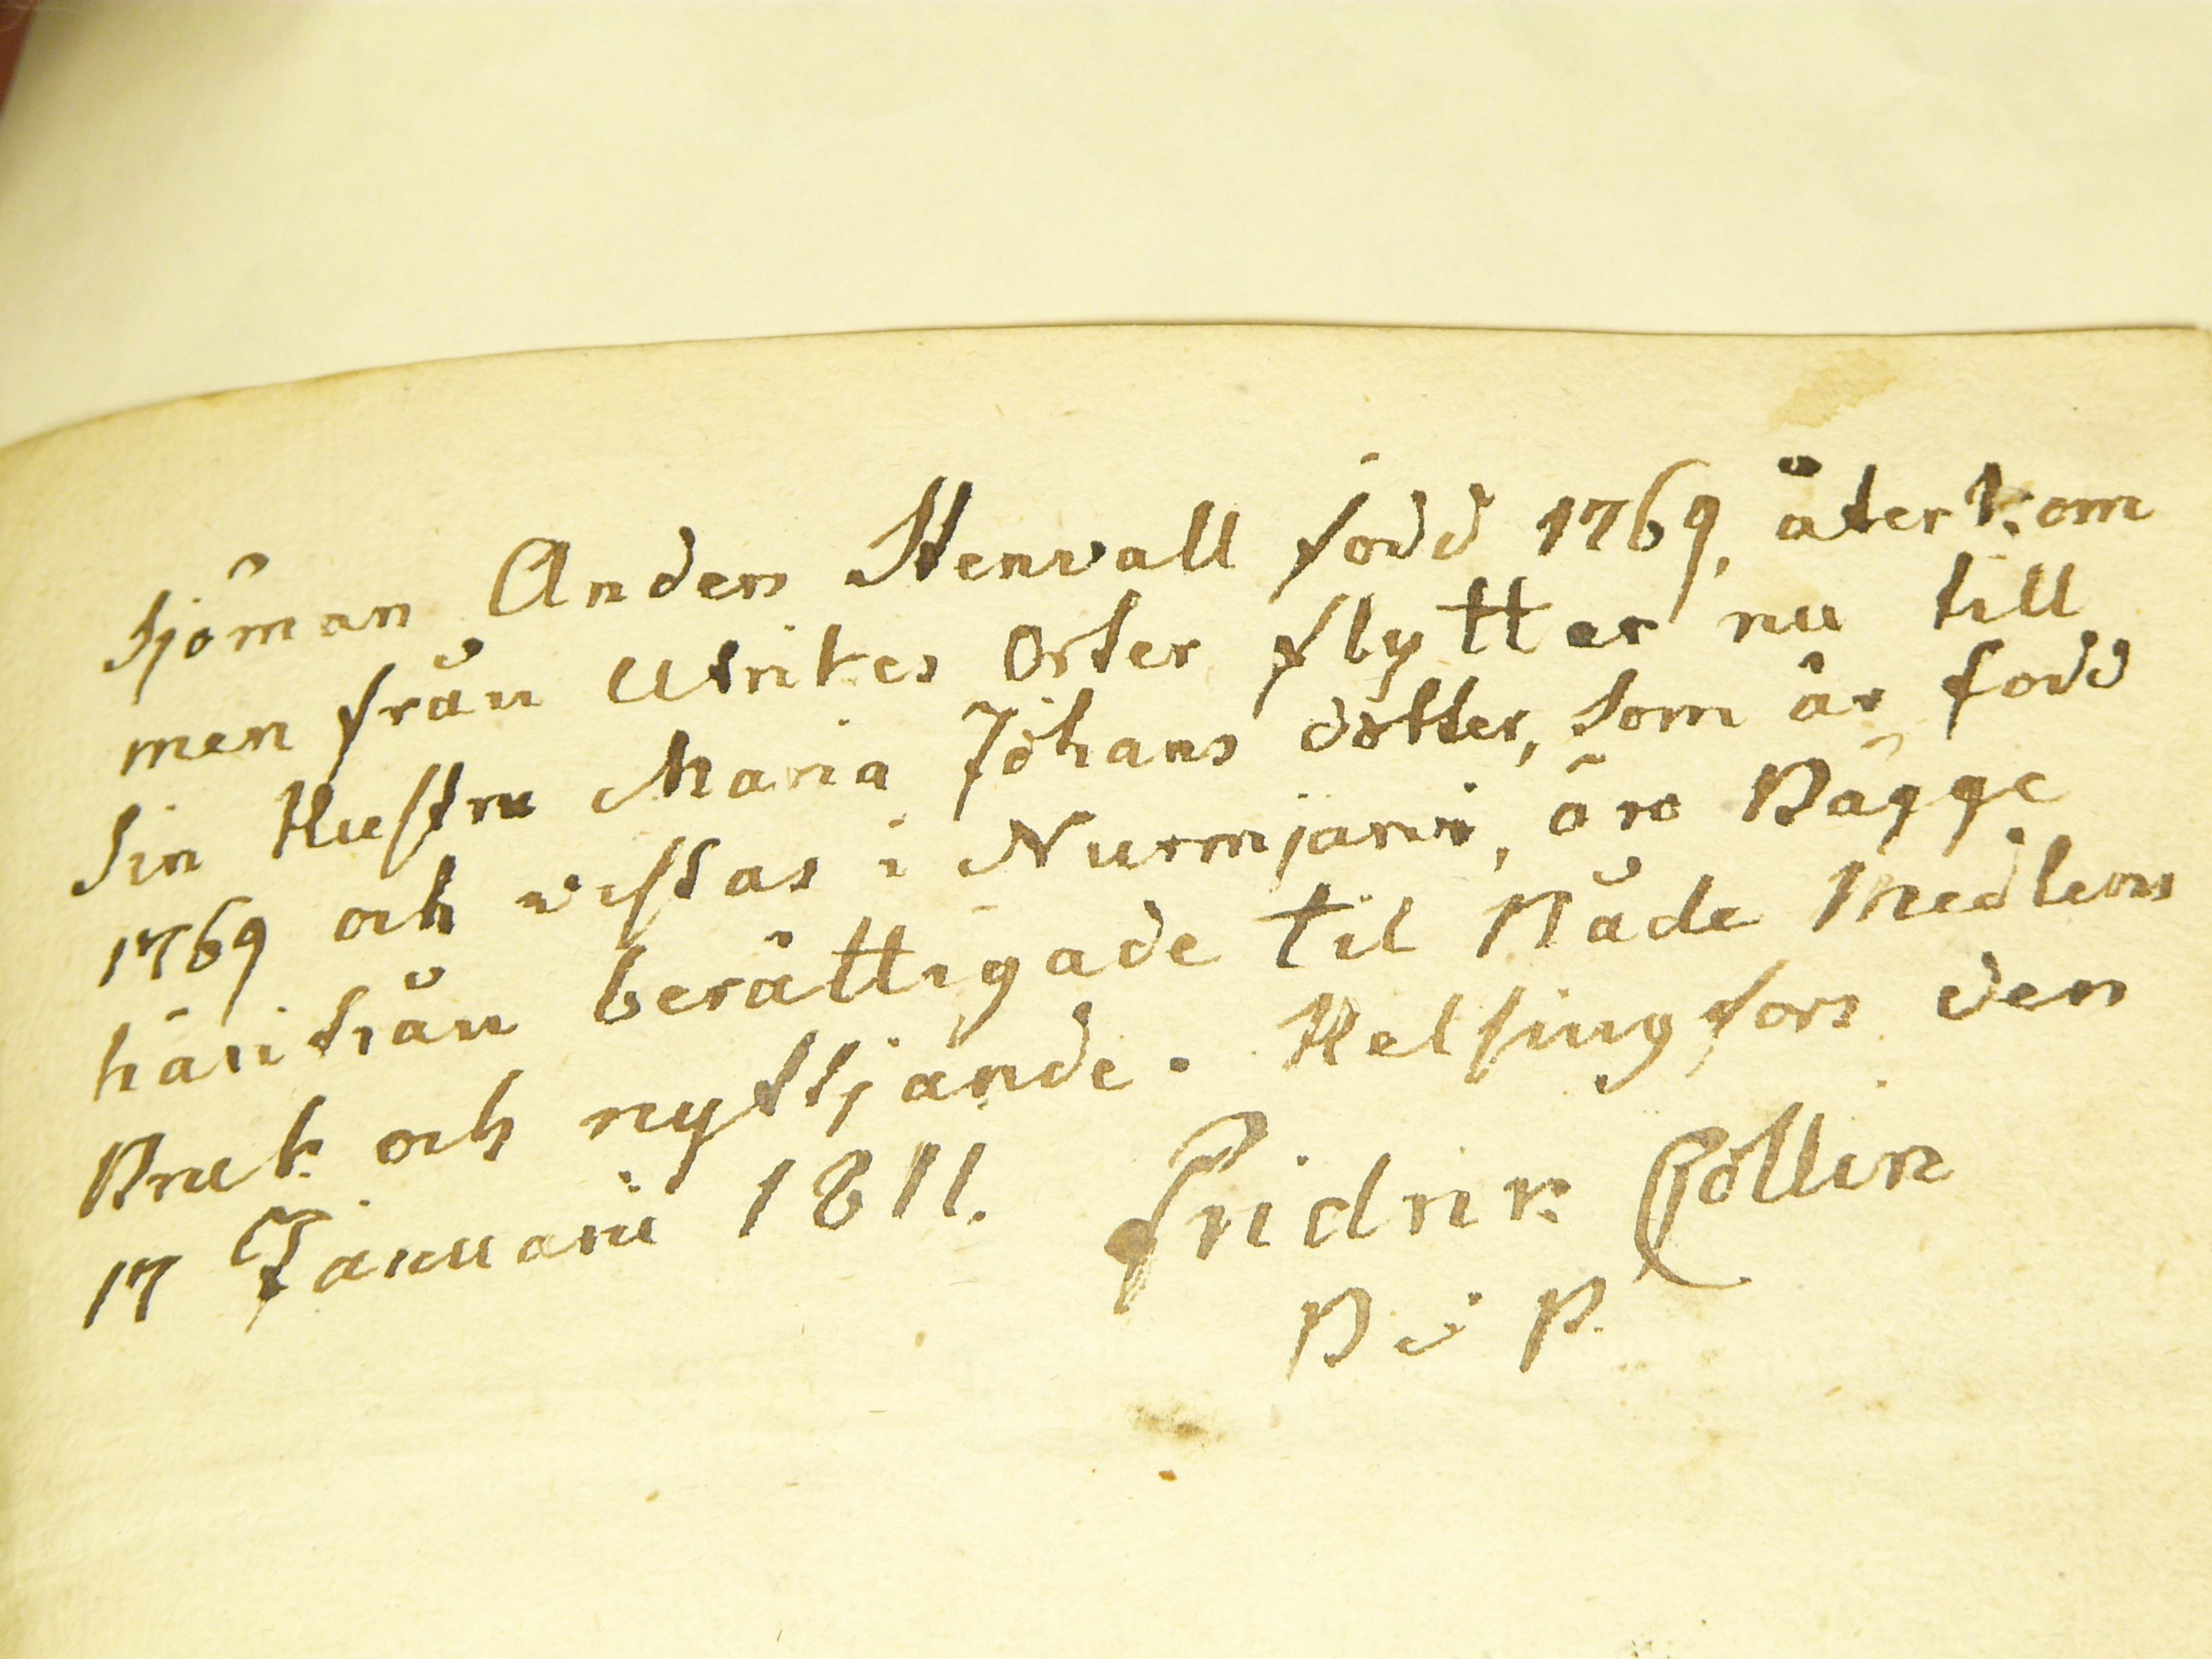 Sjöman Anders Stenvall född 1769, återkom
men från Utrikes Orter flytter nu till
Sin Hustru Maria Johans dotter, Som är född
1769 och vistas i Nurmjarvi, äro Bägge
härifrån berättigade til Nåde Medlens
Bruk och nyttjande. Helsingfors den
17 Januarii 1811. Fridrik Collin
P v P.